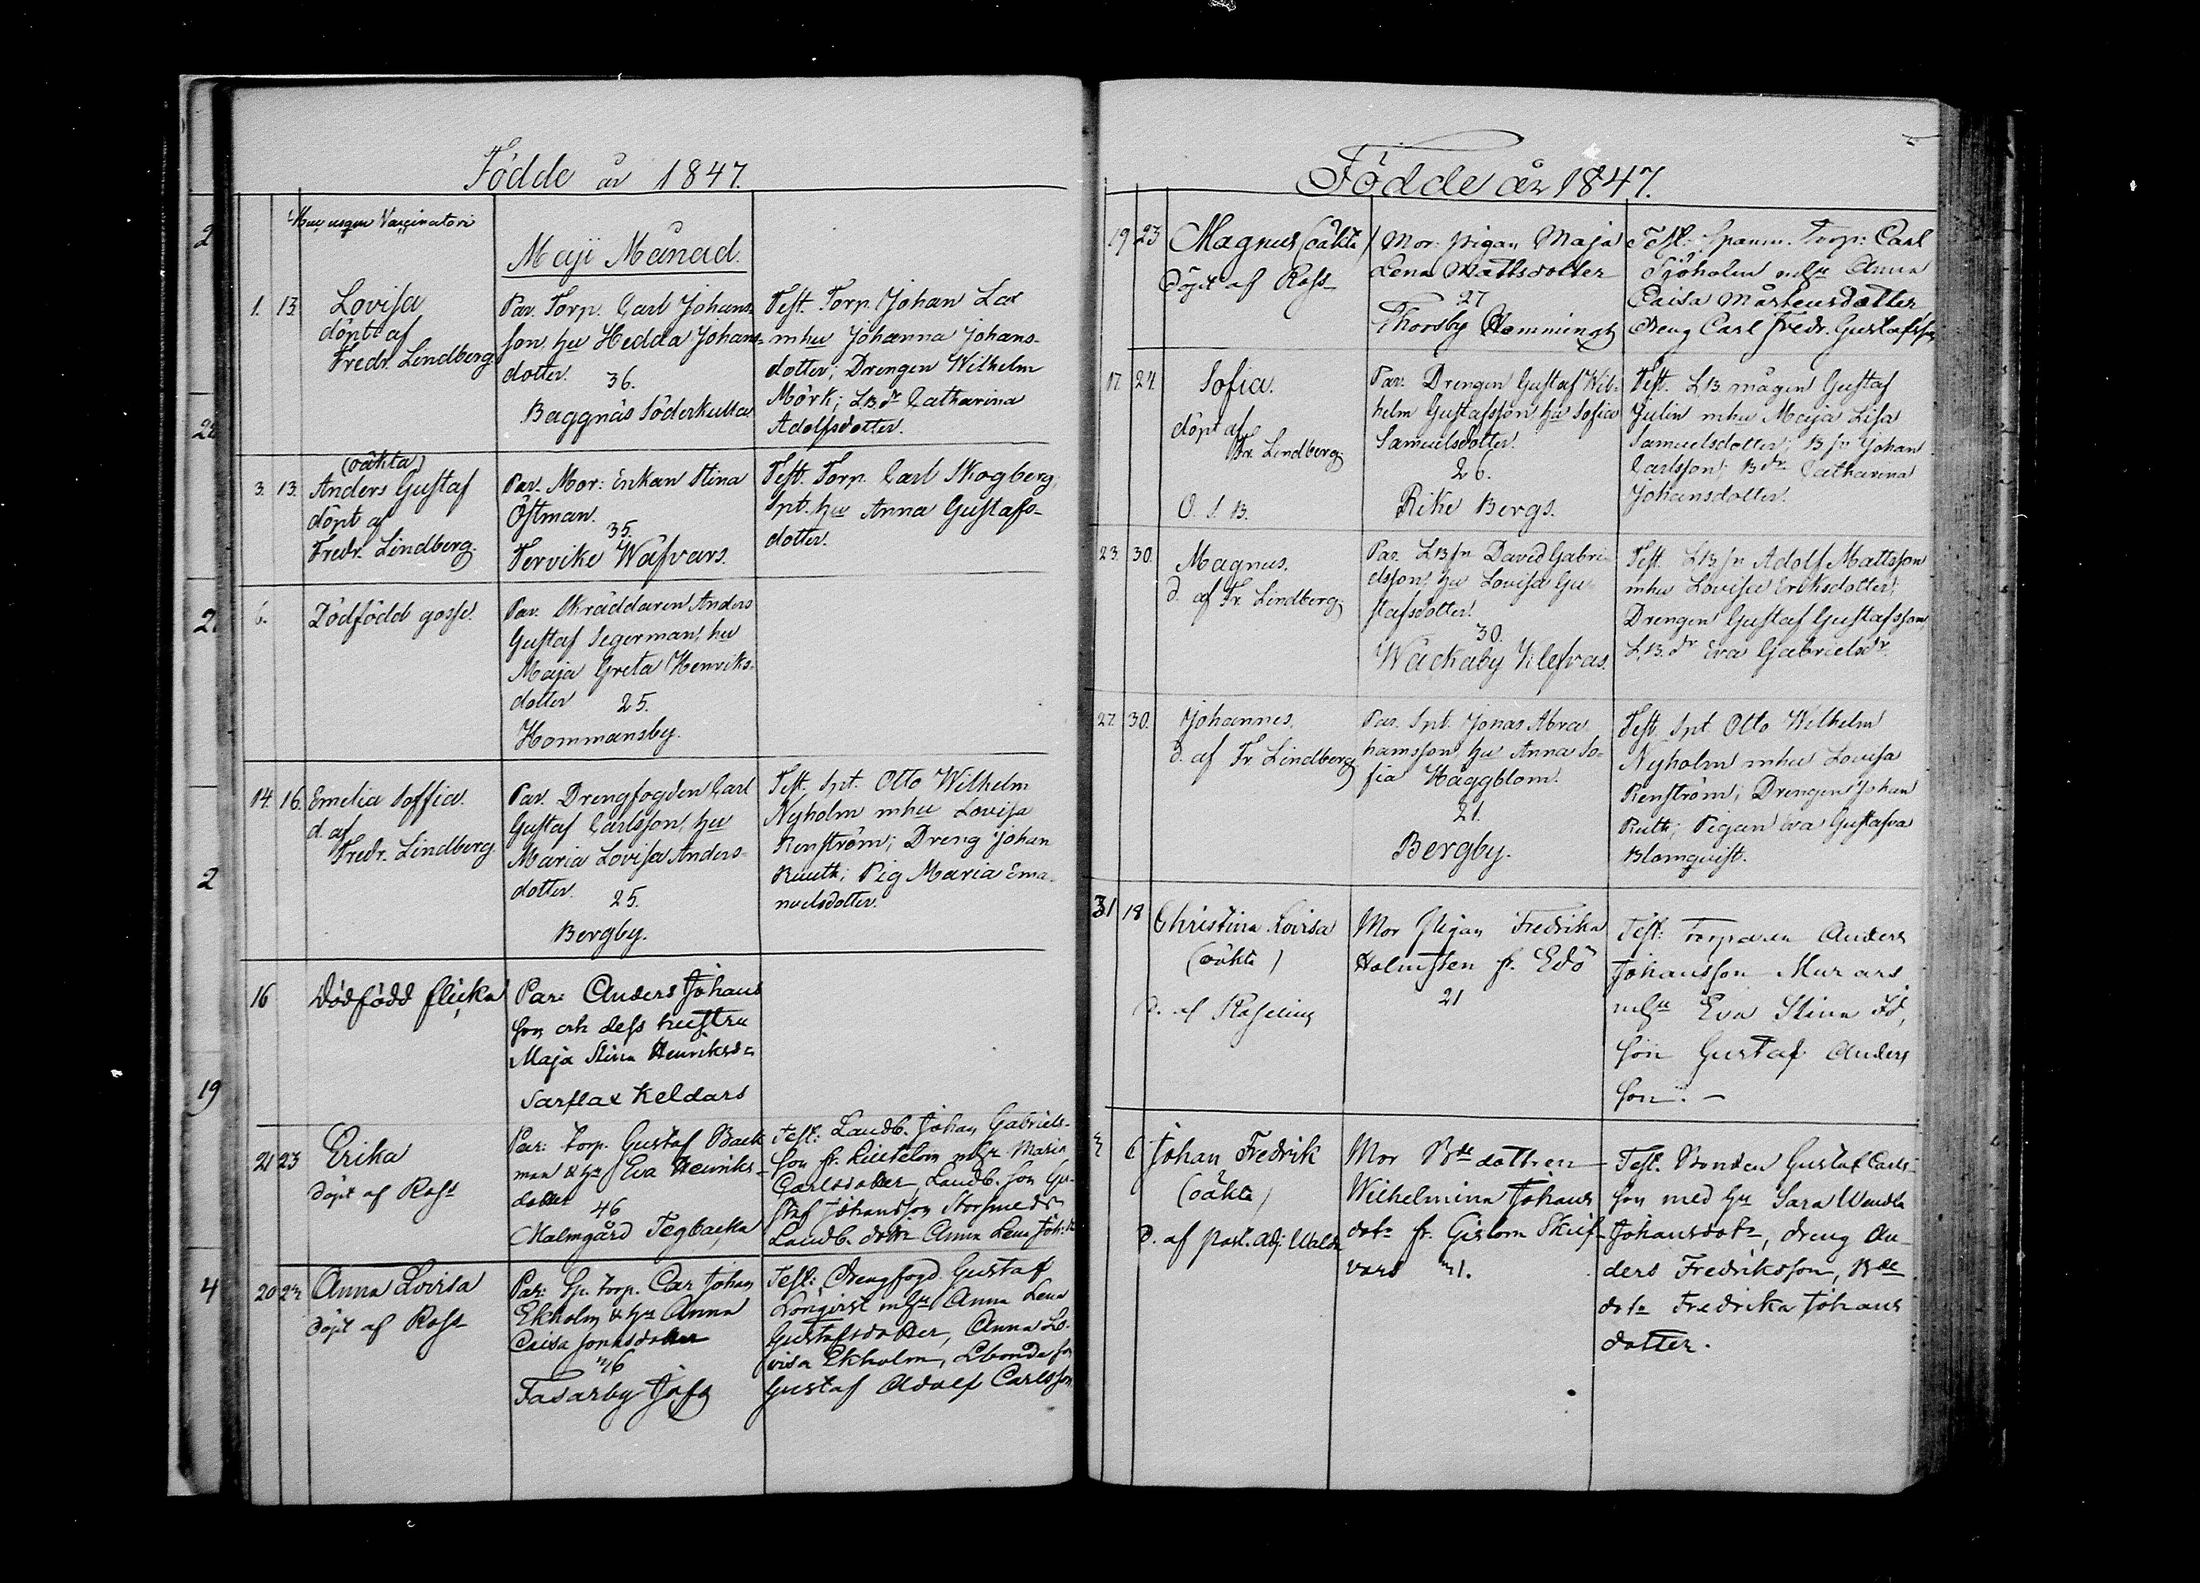 Födde år 1847.
Huc usque Vaccinatori
Maji Månad.
1. 13
Lovisa
döpt af
Fredr. Lindberg.
Par. Torp. Carl Johans-
son, hu Hedda Johans-
dotter. 36.
Baggnäs Söderkulla
Test. Torp. Johan Lax
mhu Johanna Johans-
dotter; Drengen Wilhelm
Mörk; LBdr Catharina
Adolfsdotter.
3. 13.
(oäkta)
Anders Gustaf
döpt af
Fredr. Lindberg.
Par. Mor: Enkan Stina
Östman.
35.
Tervike Wäfvars.
Test. Torp. Carl Skogberg,
Spt. hu Anna Gustafs-
dotter.
6.
Dödfödd gosse.
Par. Skräddaren Anders
Gustaf Segerman, hu
Maja Greta Henriks-
dotter 25.
Hommansby.
14. 16.
Emelia Soffia.
d. af
Fredr. Lindberg.
Par. Drengfogden Carl
Gustaf Carlsson, hu
Maria Lovisa Anders-
dotter. 25.
Bergby.
Test. Spt. Otto Wilhelm
Nyholm mhu Lovisa
Renström; Dreng Johan
Ruuth; Pig Maria Ema-
nuelsdotter.
16
Dödfödd flicka
Par: Anders Johans
son och dess hustru
Maja Stina Henriksdr
Sarflax Keldars
21 23
Erika
döpt af Rosr
Par: Torp. Gustaf Back
man & hu Eva Henriks-
dotter 46
Malmgård Tegbacka
Test: Landb. Johan Gabriels-
son fr. mhu Maria
Carlsdotter, Landb. son Gu-
staf Johansson
Landb. dottr Anna Lena
20
Anna Lovisa
döpt af Rosr
Par: Sp. torp. Carl Johan
Ekholm & hu Anna
Caisa Jonasdotter
46
Fasarby
Test: Drengfogd. Gustaf
Lönqvist mhu Anna Lena
Gustafsdotter, Anna Lo-
visa Ekholm, Lbonde son
Gustaf Adolf Carlsson
Födde år 1847.
19 23
Magnus (oäkta)
döpt af Rosr
Mor: pigan Maja
Lena Mattsdotter
27
Thorsby Hommings
Test: Spanm. Torp: Carl
Sjöholm mhu Anna
Caisa Mårtensdotter
dreng Carl Fredr. Gustafsson
17. 24.
Sofia.
döpt af
Fr. Lindberg.
O. S. B.
Par. Drengen Gustaf Wil-
helm Gustafsson, hu Sofia
Samuelsdotter.
26.
Rike Bergs.
Test. LB mågen Gustaf
Julin mhu Maja Lisa
Samuelsdotter; Bsn Johan
Carlsson; Bdr Catharina
Johansdotter.
23. 30.
Magnus.
d. af Fr. Lindberg.
Par. LBsn David Gabri-
elsson, hu Lovisa Gu-
stafsdotter.
30.
Wäckaby Klefvas.
Test. LBsn Adolf Mattsson
mhu Lovisa Eriksdotter;
Drengen Gustaf Gustafsson,
L.B.dr Eva Gabrielsdr
27. 30.
Johannes.
d. af Fr. Lindberg
Par. Spt. Jonas Abra
hamsson, hu Anna So-
fia Häggblom.
21.
Bergby.
Test. Spt Otto Wilhelm
Nyholm mhu Lovisa
Renström; Drengen Johan
Ruth; Pigan Eva Gustafva
Blomqvist.
31 18
Christina Lovisa
(oäkta)
d. af Roselius
Mor Pigan Fredrika
Holmsten fr. Edö
21
Test: Torparen Anders
Johansson Murars
mhu Eva Stina
son Gustaf Anders
son. —
6
Johan Fredrik
(oäkta)
d. af past. adj.
Mor Bde dottren
Wilhelmina Johans
dotr fr. Gislom Skif-
vars 21.
Test. Bonden Gustaf Carls-
son med hu Sara Wendla
Johansdotr, dreng An-
ders Fredriksson, Bde
dotr Fredrika Johans
dotter.
2
2
2
19
4